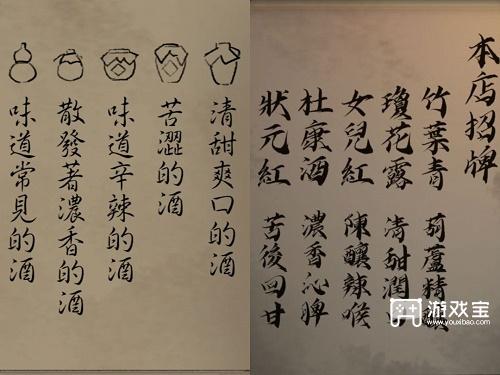 清甜爽口的酒
苦澀的酒
味道辛辣的酒
散發著濃香的酒
味道常見的酒
本店招牌
竹葉青 葫蘆精釀
瓊花露 清甜潤口
女兒紅 陳釀辣喉
杜康酒 濃香沁脾
狀元紅 苦後回甘
游戏宝
www.youxibao.com